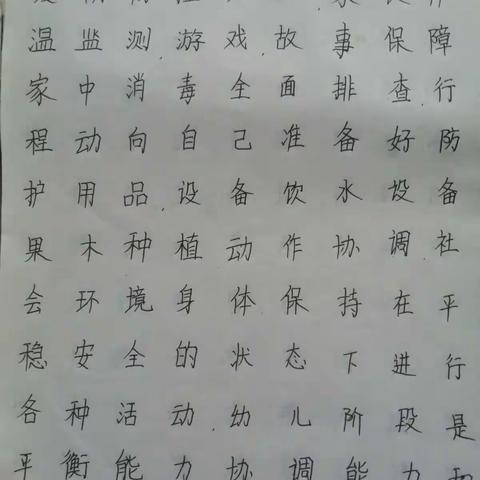 温监测,游戏,故事保障
家中消毒全面排查,行
程动向自己准备好防
护用品,设备饮水设备
果木种植,动作协调,社
会环境身体保持在平
稳安全的状态下进行
各种活动,幼儿阶段是
平衡能力协调能力